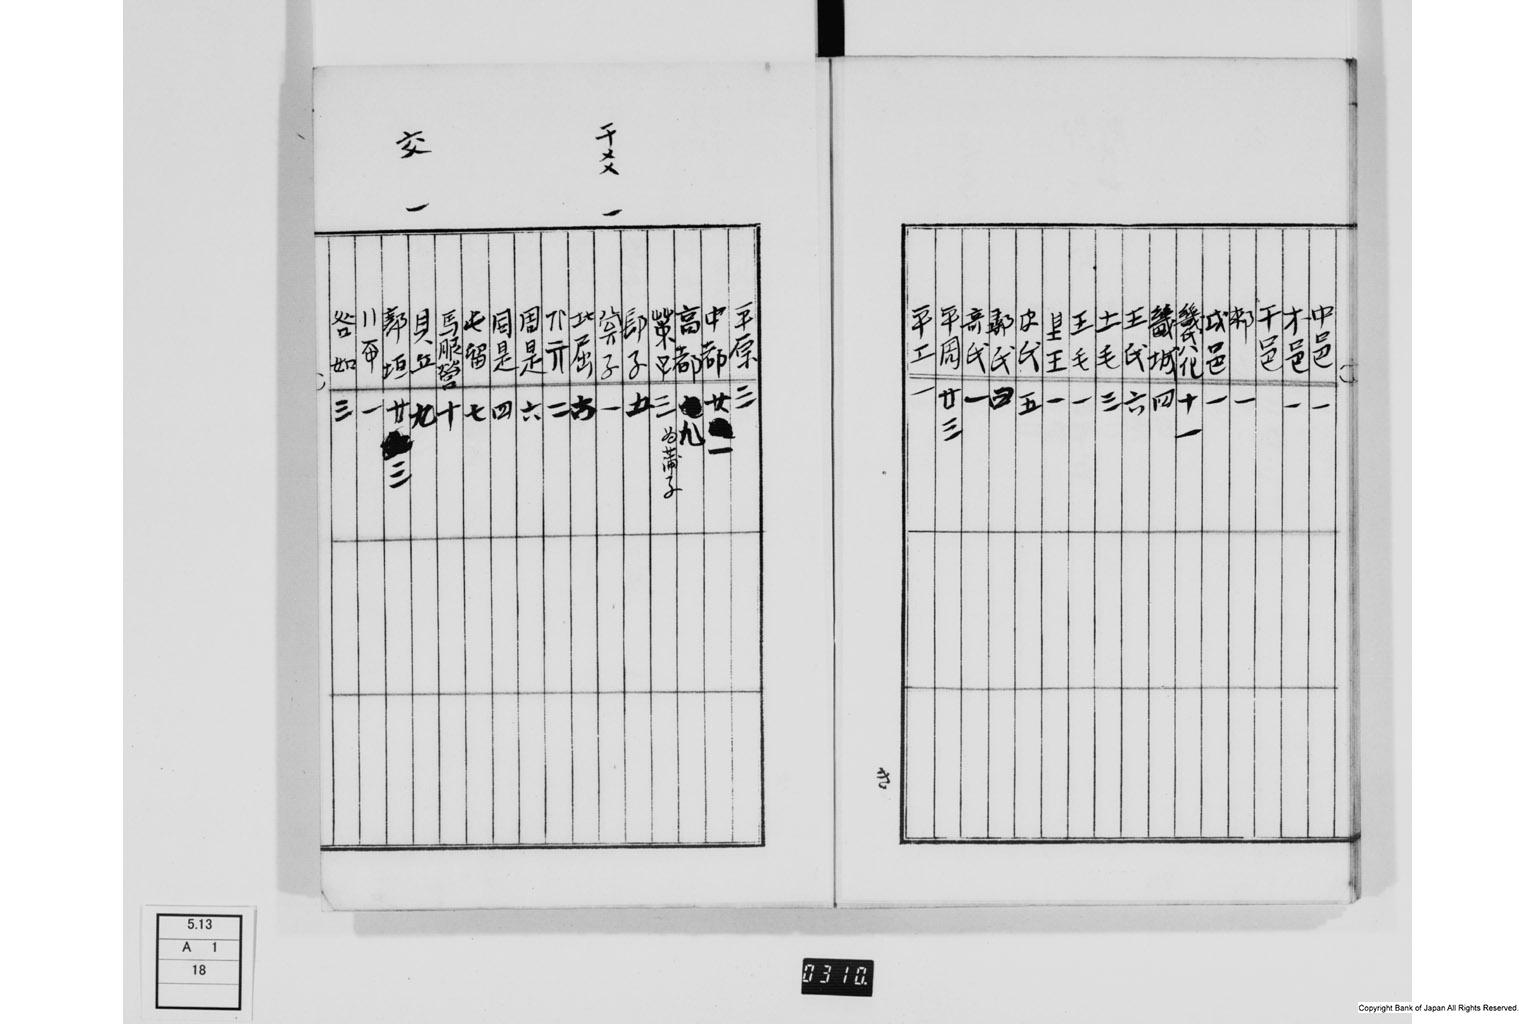 中邑 一
才邑 一
干邑
都 一
成邑 一
畿城 四
王氏 六
土毛 三
王毛 一
皇王 一
皮氏 五
鄩氏 四
奇氏 一
平周 廿三
平工 一
平原 三
中都 廿一
高都 九
三 為蒲子
干
一
長子 五
一
北屈 六
二
周是 六
周是 四
屯留 七
馬服營 十
貝丘 九
交 一
郭垣 廿三
一
咎如 三
き
5.13
A 1
18
0310.
Copyright Bank of Japan All Rights Reserved.